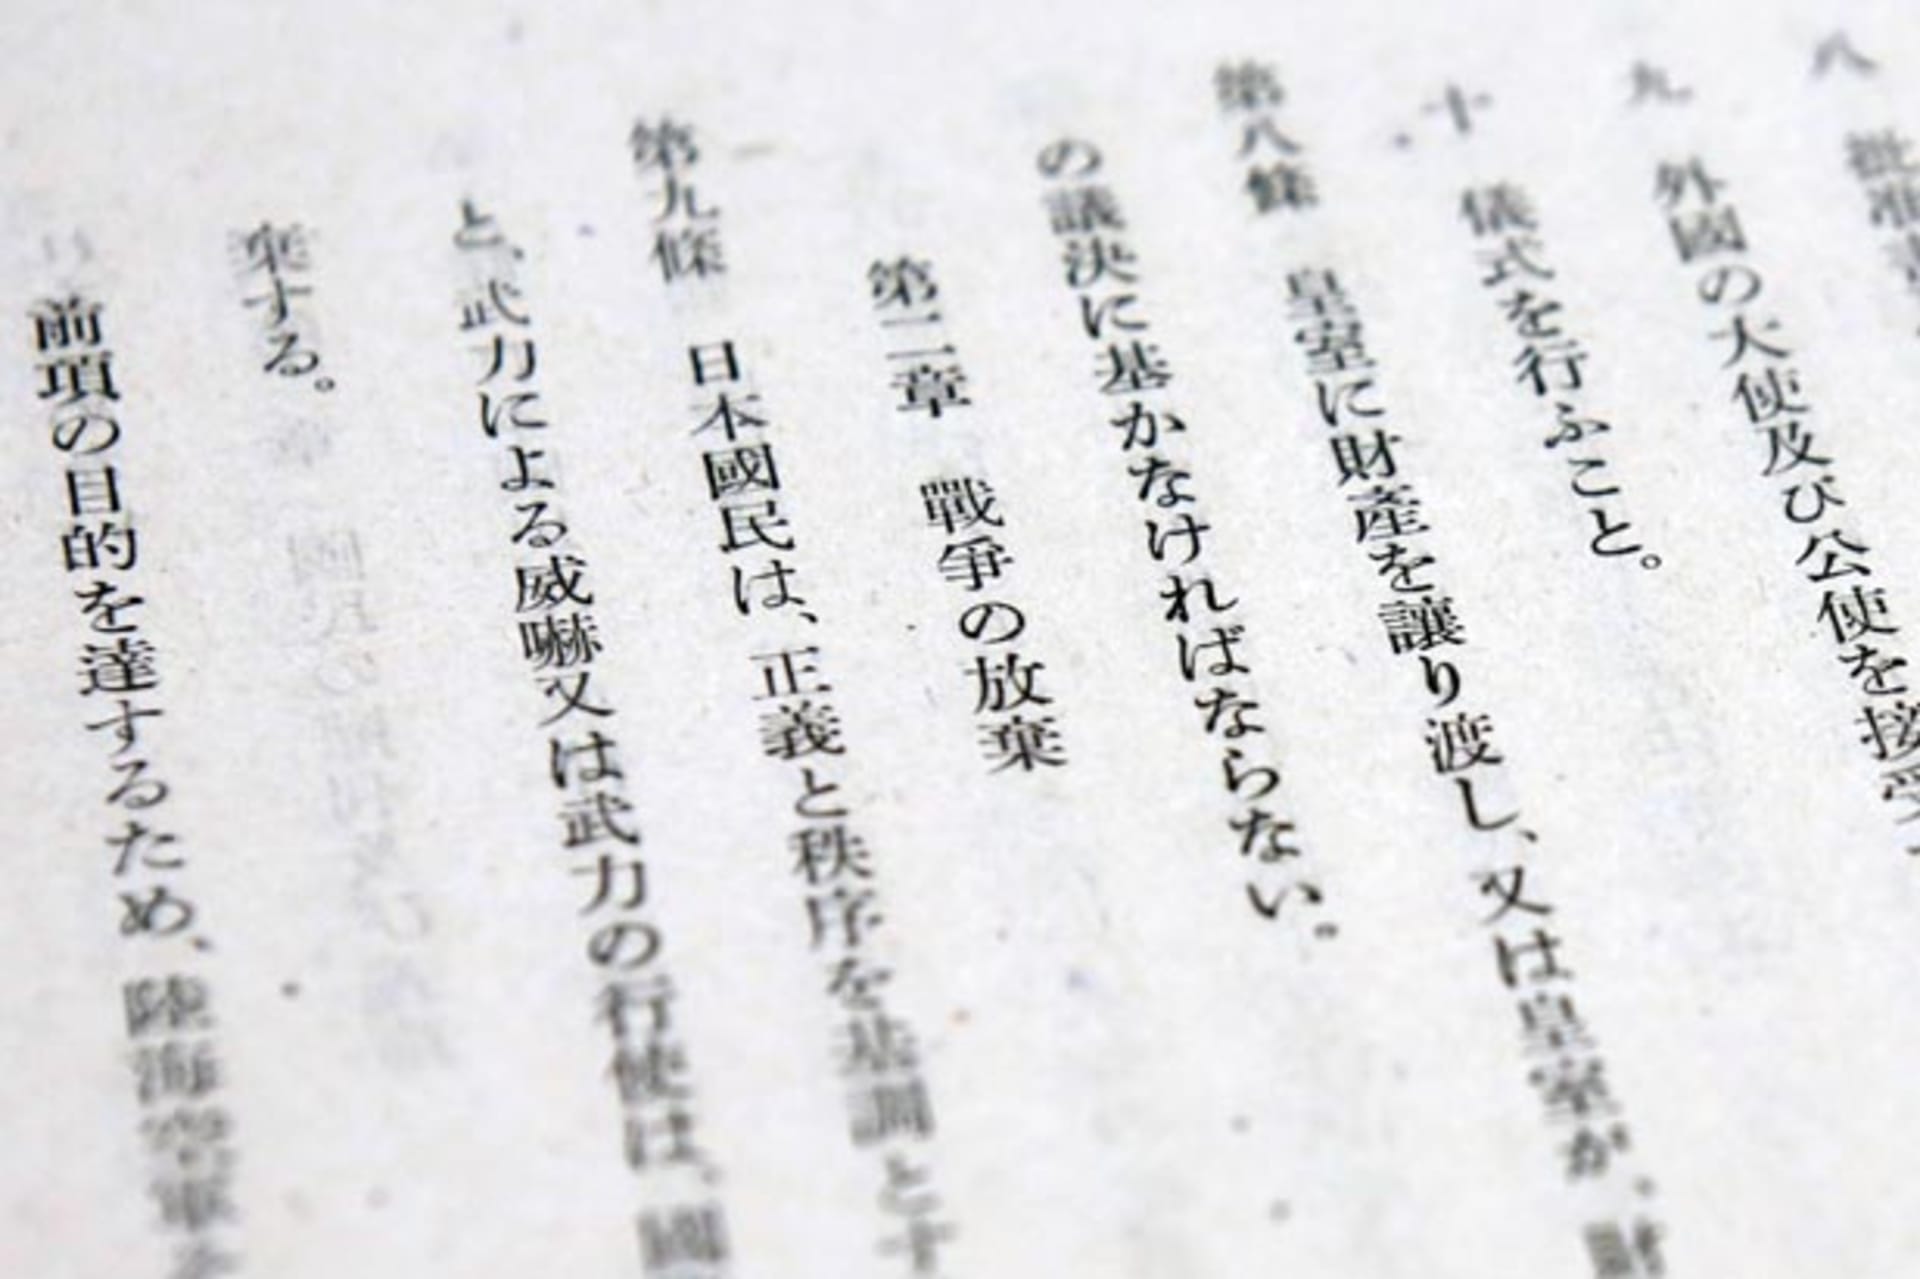 八 批准書
九 外國の大使及び公使を接受
十 儀式を行ふこと。
第八條 皇室に財產を讓り渡し、又は皇室が、財
の議決に基かなければならない。
第二章 戰爭の放棄
第九條 日本國民は、正義と秩序を基調とす
と、武力による威嚇又は武力の行使は、國
棄する。
前項の目的を達するため、陸海空軍そ